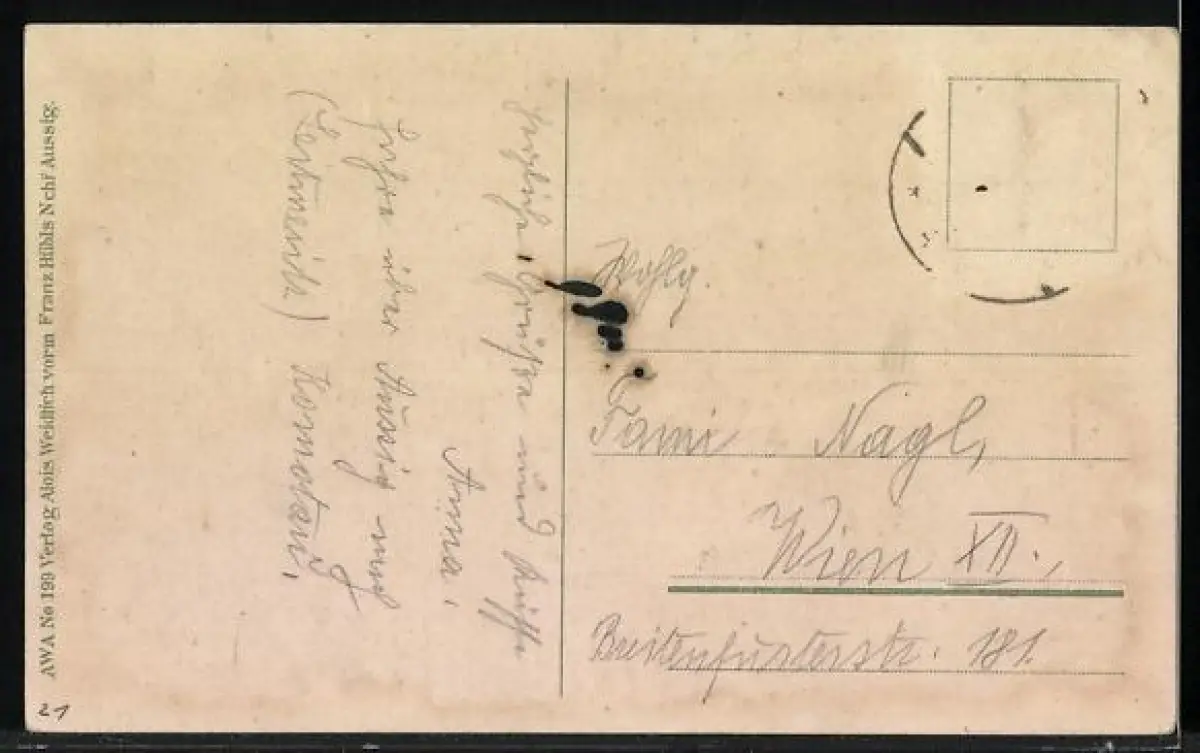 Herzliche Grüße und Küsse
Anna.
Fahre über Aussig nach
(Leitmeritz) Komotau.
Wohlg.
Fami Nagl,
Wien XII.,
Breitenfurterstr. 181.
AWA No 199 Verlag Alois Weidlich vorm Franz Hübls Nchf Aussig.
21